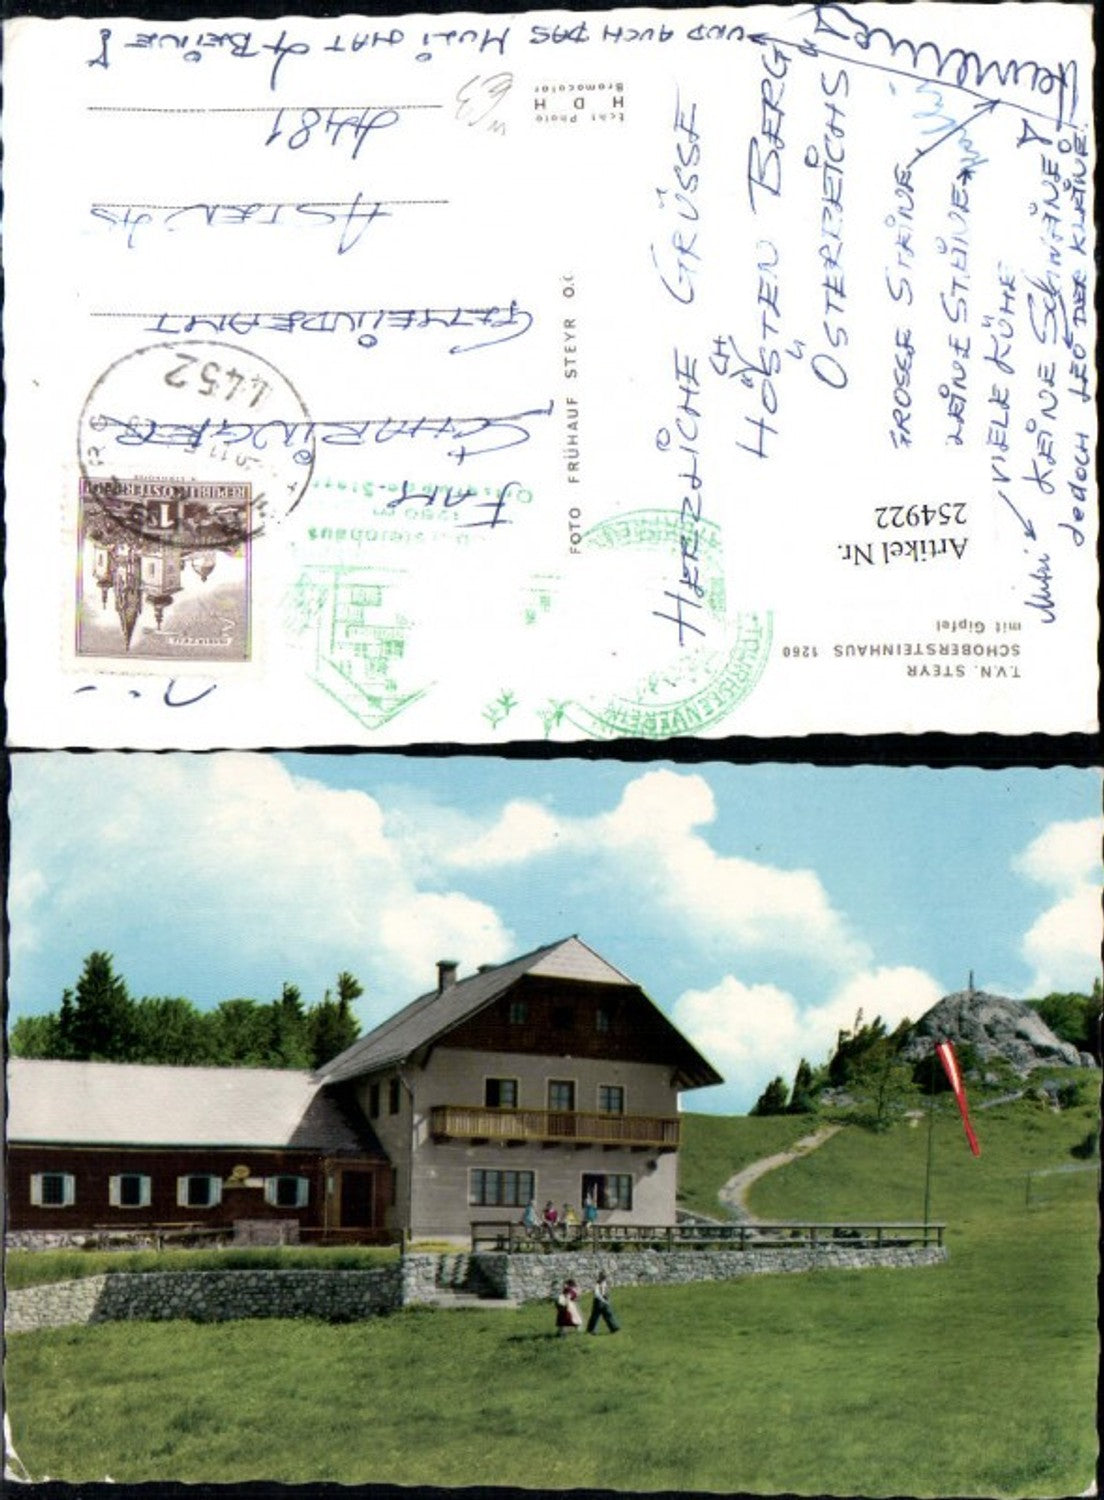 T.V.N. STEYR
SCHOBERSTEINHAUS 1260
mit Gipfel
Artikel Nr.
254922
HERZLICHE GRÜSSE
HÖCHSTEN BERG
ÖSTERREICHS
GROSSE STEINE
KLEINE STEINE
VIELE KÜHE
KEINE SCHWÄNE!
JEDOCH LEO DER KLEINE.
UND AUCH DAS MULI HAT 4 BEINE!
FOTO FRÜHAUF STEYR O.
Echt Photo
H D H
Bromocolor
W63
FAM
GEMEINDEAMT
ASTEN
4481
TOURISTENVEREIN
NATURFREUNDE
1260 m
Ortsgruppe Steyr
4452
REPUBLIK ÖSTERREICH
MARIAZELL